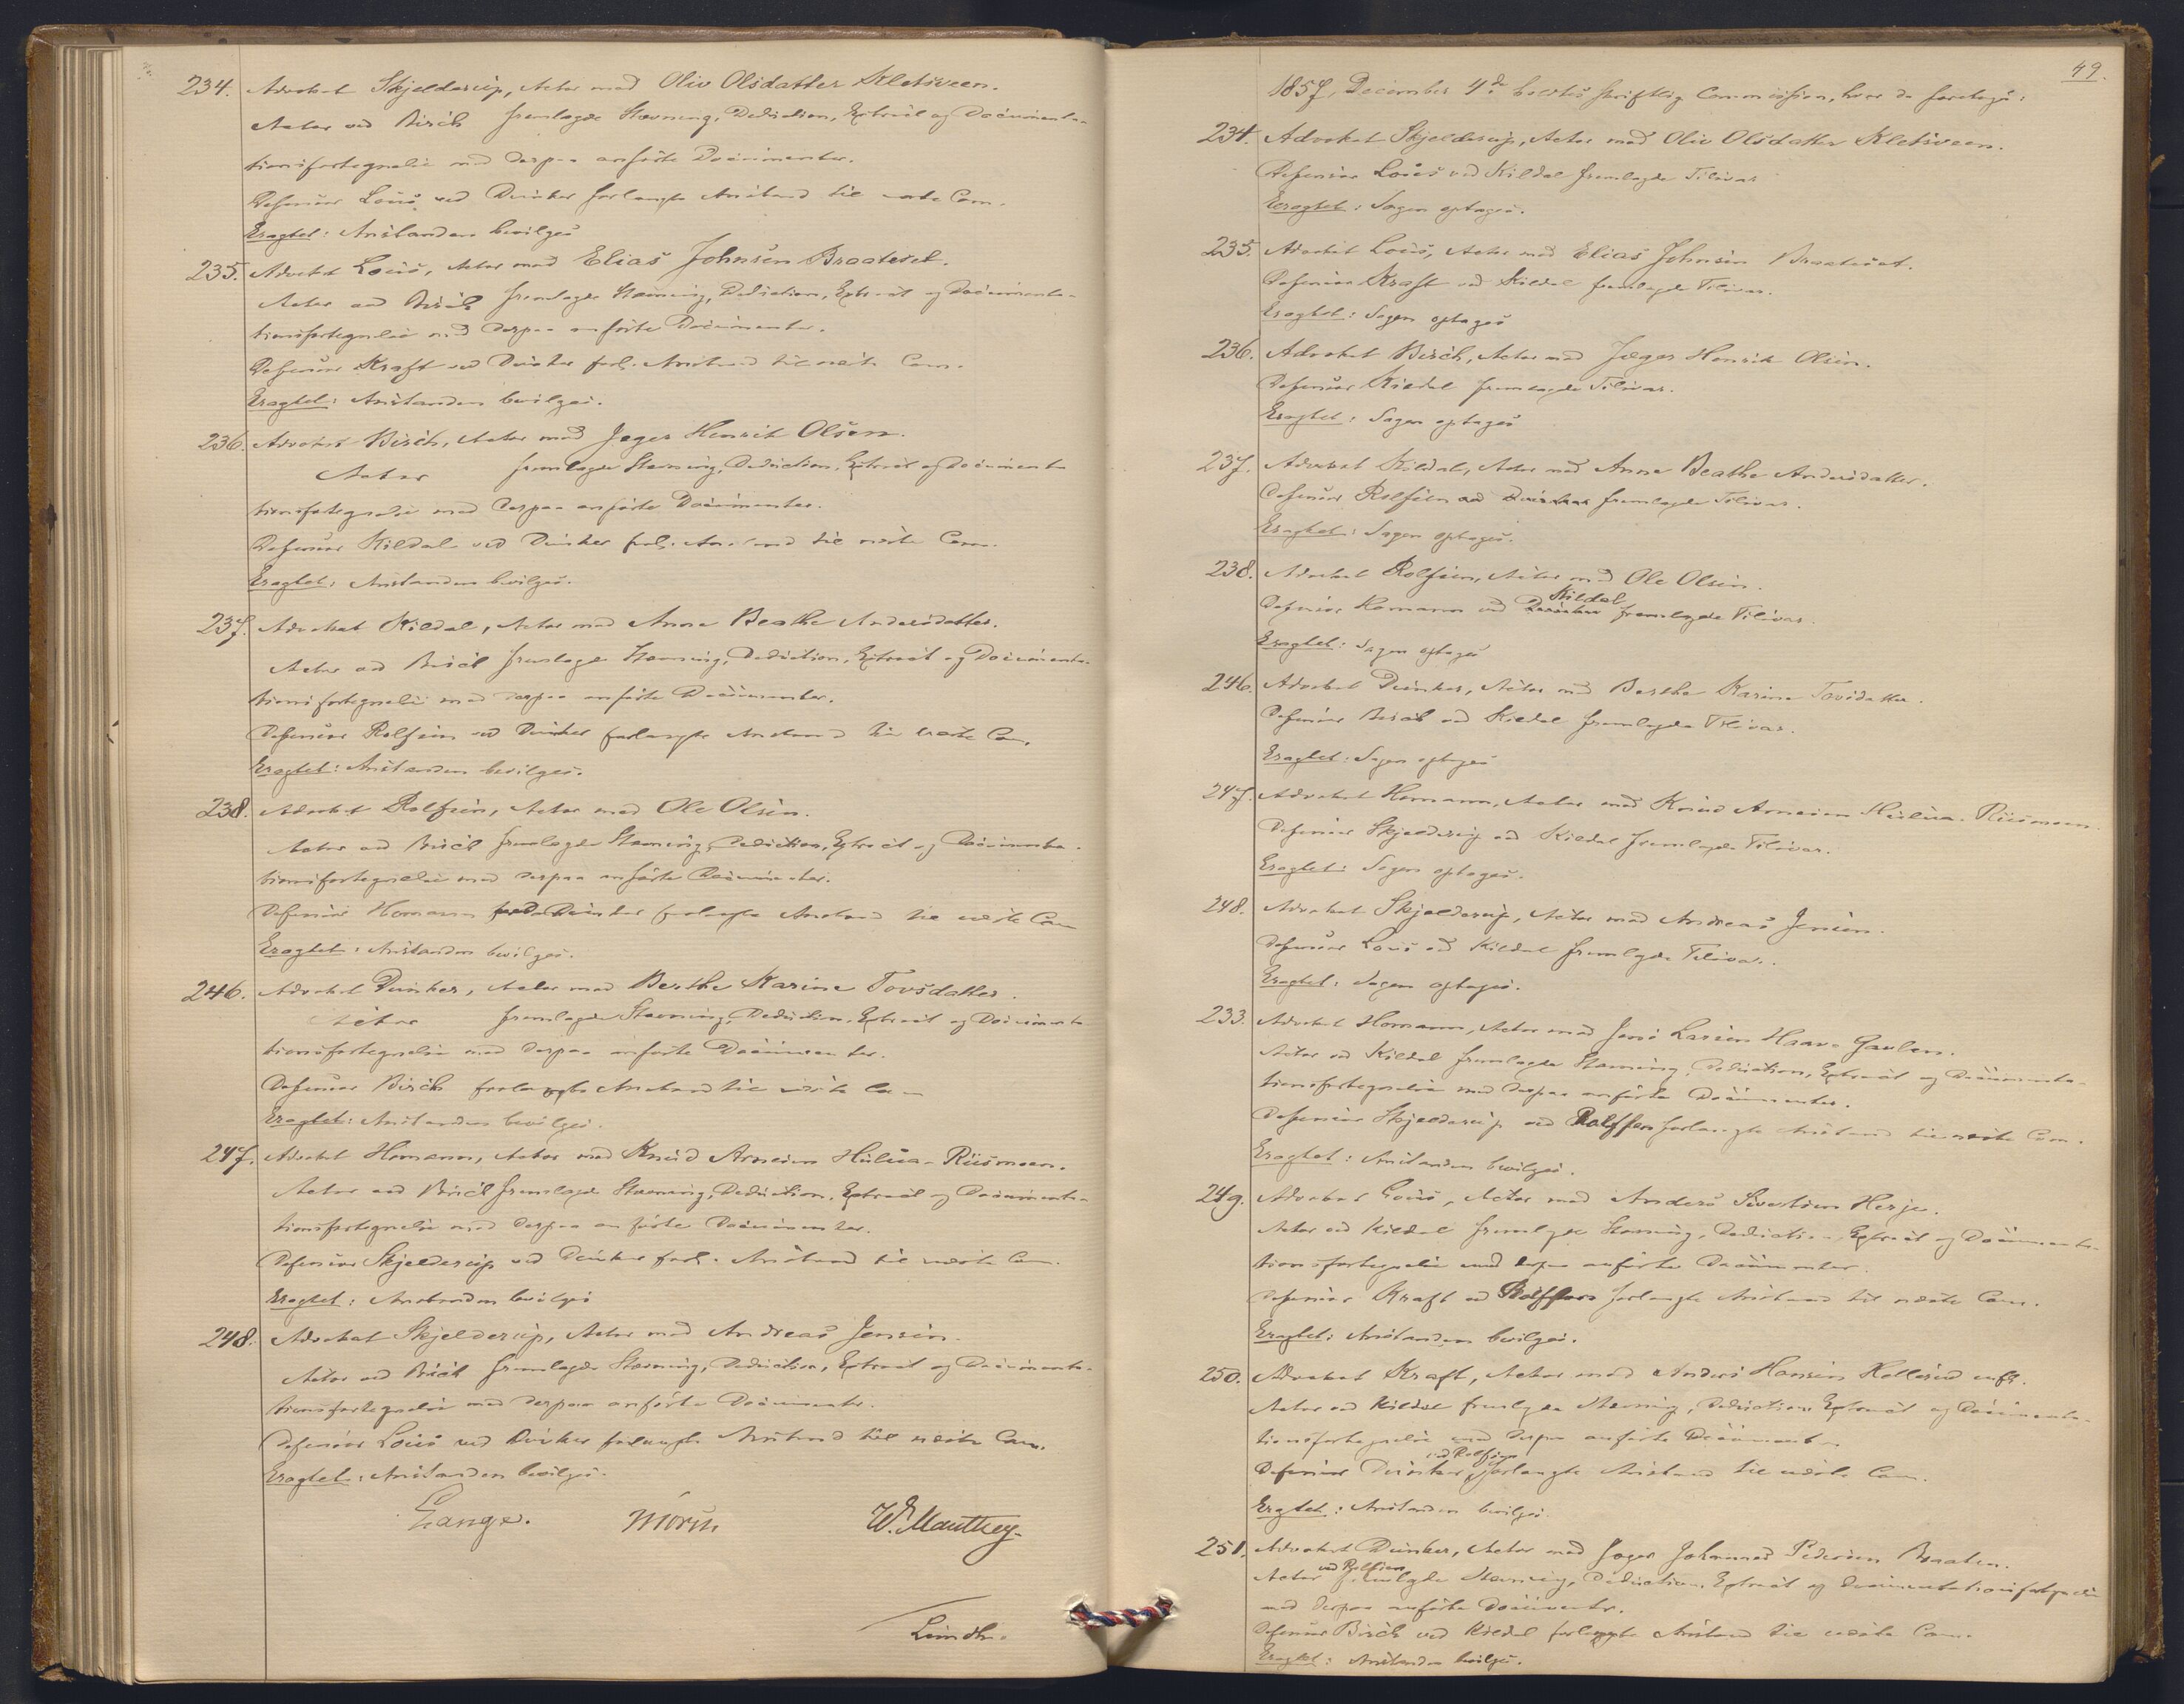 234. Advokat Skjelderup, Actor mod Oliv Olsdatter Kletsveen.
Actor ved Birch fremlagde Stævning, Deduction, Extract og Documenta-
tionsfortegnelse med derpaa anførte Documenter.
Defensor Lous ved Dunker forlangte Anstand til næste Com.
Eragtet: Anstanden bevilges
235. Advokat Lous, Actor mod Elias Johnsen Braateset.
Actor ved Birch fremlagde Stævning, Deduction, Extract og Documenta-
tionsfortegnelse med derpaa anførte Documenter.
Defensor Kraft ved Dunker forl. Anstand til næste Com.
Eragtet: Anstanden bevilges.
236. Advokat Birch, Actor mod Jæger Henrik Olsen.
Actor fremlagde Stævning, Deduction, Extract og Documenta
tionsfortegnelse med derpaa anførte Documenter.
Defensor Kildal ved Dunker forl. Anstand til næste Com.
Eragtet: Anstanden bevilges.
237. Advokat Kildal, Actor mod Anne Beathe Andersdatter.
Actor ved Birch fremlagde Stævning, Deduction, Extract og Documenta-
tionsfortegnelse med derpaa anførte Documenter.
Defensor Rolfsen ved Dunker forlangte Anstand til næste Com.
Eragtet: Anstanden bevilges.
238. Advokat Rolfsen, Actor mod Ole Olsen.
Actor ved Birch fremlagde Stævning, Deduction, Extract og Documenta-
tionsfortegnelse med derpaa anførte Documenter.
Defensor Homann ved Dunker forlangte Anstand til næste Com
Eragtet: Anstanden bevilges.
246. Advokat Dunker, Actor mod Berthe Karine Tovsdatter.
Actor fremlagde Stævning, Deduction, Extract og Documenta
tionsfortegnelse med derpaa anførte Documenter.
Defensor Birch forlangte Anstand til næste Com
Eragtet: Anstanden bevilges.
247. Advokat Homann, Actor mod Knud Arnesen Hulua-Riismoen.
Actor ved Birch fremlagde Stævning, Deduction, Extract og Documenta-
tionsfortegnelse med derpaa anførte Documenter.
Defensor Skjelderup ved Dunker forl. Anstand til næste Com.
Eragtet: Anstanden bevilges
248. Advokat Skjelderup, Actor mod Andreas Jensen.
Actor ved Birch fremlagde Stævning, Deduction, Extract og Documenta-
tionsfortegnelse med derpaa anførte Documenter.
Defensor Lous ved Dunker forlangte Anstand til næste Com.
Eragtet: Anstanden bevilges.
Lange. Morch W. Manthey-
Lundh.
49.
1857, December 4de holdtes skriftlig Commission, hvor da foretoges:
234. Advokat Skjelderup, Actor mod Oliv Olsdatter Kletsveen.
Defensor Lous ved Kildal fremlagde Tilsvar
Eragtet: Sagen optages.
235. Advokat Lous, Actor mod Elias Johnsen Braateset.
Defensor Kraft ved Kildal fremlagde Tilsvar.
Eragtet: Sagen optages
236. Advokat Birch, Actor mod Jæger Henrik Olsen.
Defensor Kildal fremlagde Tilsvar.
Eragtet: Sagen optages
237. Advokat Kildal, Actor mod Anne Beathe Andersdatter.
Defensor Rolfsen ved Dunker fremlagde Tilsvar.
Eragtet: Sagen optages.
238. Advokat Rolfsen, Actor mod Ole Olsen.
Kildal
Defensor Homann ved Dunker fremlagde Tilsvar.
Eragtet: Sagen optages
246. Advokat Dunker, Actor mod Berthe Karine Tovsdatter.
Defensor Birch ved Kildal fremlagde Tilsvar.
Eragtet: Sagen optages
247. Advokat Homann, Actor mod Knud Arnesen Hulua-Riismoen.
Defensor Skjelderup ved Kildal fremlagde Tilsvar.
Eragtet: Sagen optages.
248. Advokat Skjelderup, Actor mod Andreas Jensen.
Defensor Lous ved Kildal fremlagde Tilsvar.
Eragtet: Sagen optages.
233. Advokat Homann, Actor mod Jens Larsen Haave-Gaulen.
Actor ved Kildal fremlagde Stævning, Deduction, Extract og Documenta-
tionsfortegnelse med derpaa anførte Documenter.
Defensor Skjelderup ved Rolfsen forlangte Anstand til næste Com.
Eragtet: Anstanden bevilges.
249. Advokat Lous, Actor mod Anders Sivertsen Herje.
Actor ved Kildal fremlagde Stævning, Deduction, Extract og Documenta-
tionsfortegnelse med derpaa anførte Documenter.
Defensor Kraft ved Rolfsen forlangte Anstand til næste Com.
Eragtet: Anstanden bevilges.
250. Advokat Kraft, Actor mod Anders Hansen Kollerud mfl.
Actor ved Kildal fremlagde Stævning, Deduction, Extract og Documenta-
tionsfortegnelse med derpaa anførte Documenter
ved Rolfsen
Defensor Dunker forlangte Anstand til næste Com.
Eragtet: Anstanden bevilges.
251. Advokat Dunker, Actor mod Jæger Johannes Pedersen Braaten.
ved Rolfsen
Actor fremlagde Stævning, Deduction, Extract og Documentationsfortegnelse
med derpaa anførte Documenter.
Defensor Birch ved Kildal forlangte Anstand til næste Com.
Eragtet: Anstanden bevilges.